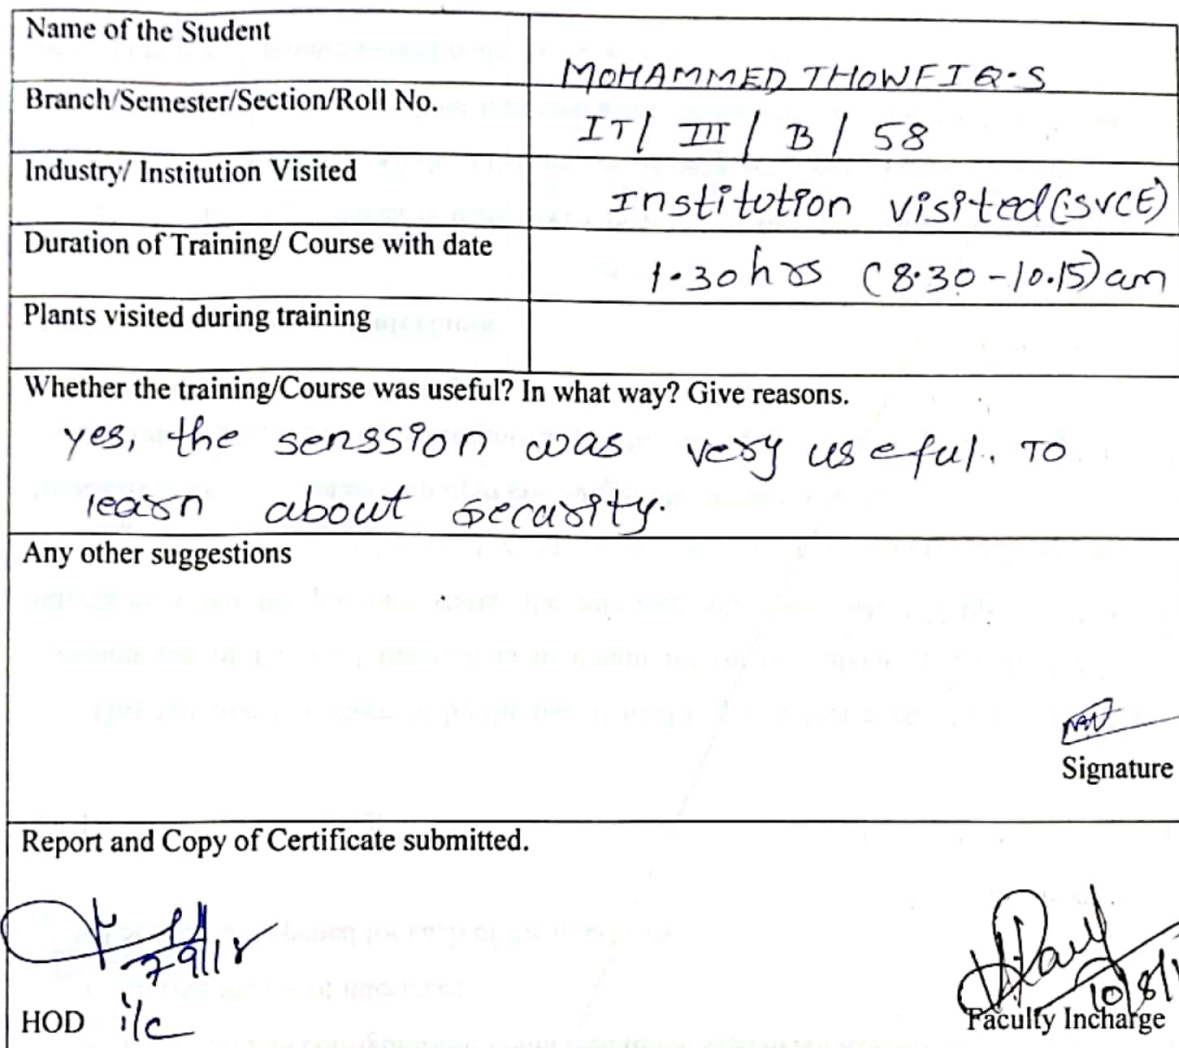 Name of the Student
MOHAMMED THOWFIQ.S
Branch/Semester/Section/Roll No.
IT/ III / B / 58
Industry/ Institution Visited
Institution visited (SVCE)
Duration of Training/ Course with date
1.30 hrs (8.30 - 10.15) am
Plants visited during training
Whether the training/Course was useful? In what way? Give reasons.
yes, the senssion was very useful. To
learn about security.
Any other suggestions
Signature
Report and Copy of Certificate submitted.
HOD i/c
Faculty Incharge